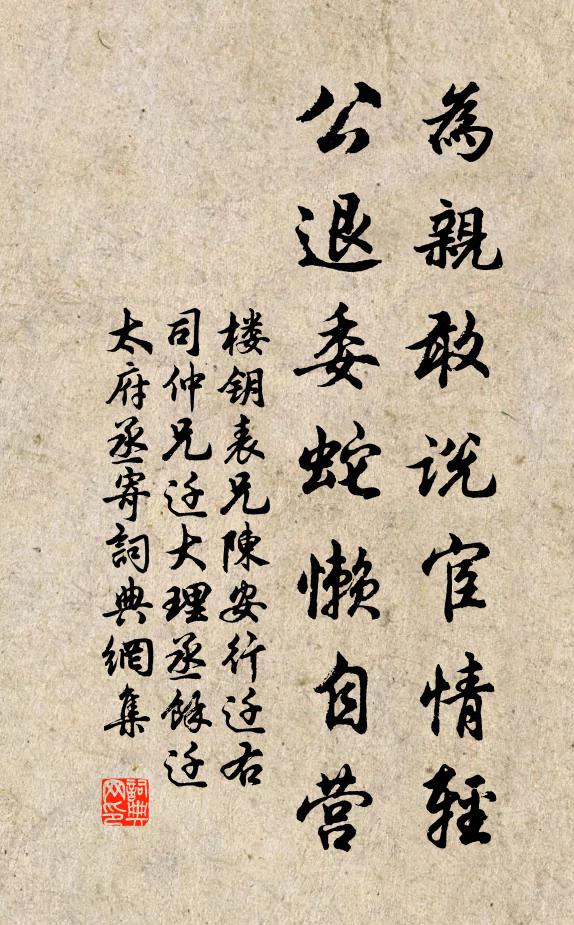 為親敢說宦情輕
公退委蛇懶自营
楼钥表兄陳安行迁右
司仲兄迁大理丞餘迁
太府丞寄詞典網集
詞典
网印